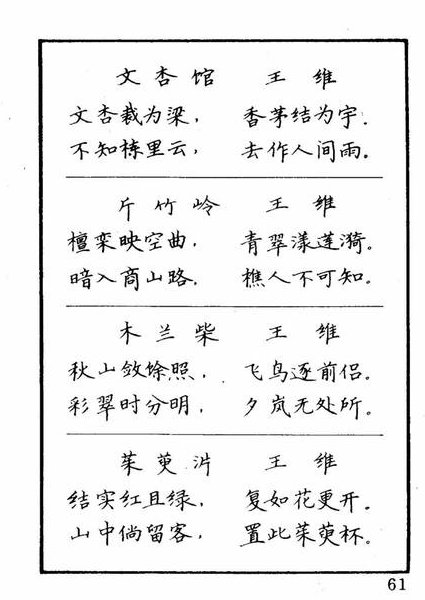 文杏馆 王维
文杏裁为梁， 香茅结为宇。
不知栋里云， 去作人间雨。
斤竹岭 王维
檀栾映空曲， 青翠漾莲漪。
暗入商山路， 樵人不可知。
木兰柴 王维
秋山敛馀照， 飞鸟逐前侣。
彩翠时分明， 夕岚无处所。
茱萸沜 王维
结实红且绿， 复如花更开。
山中倘留客， 置此茱萸杯。
61